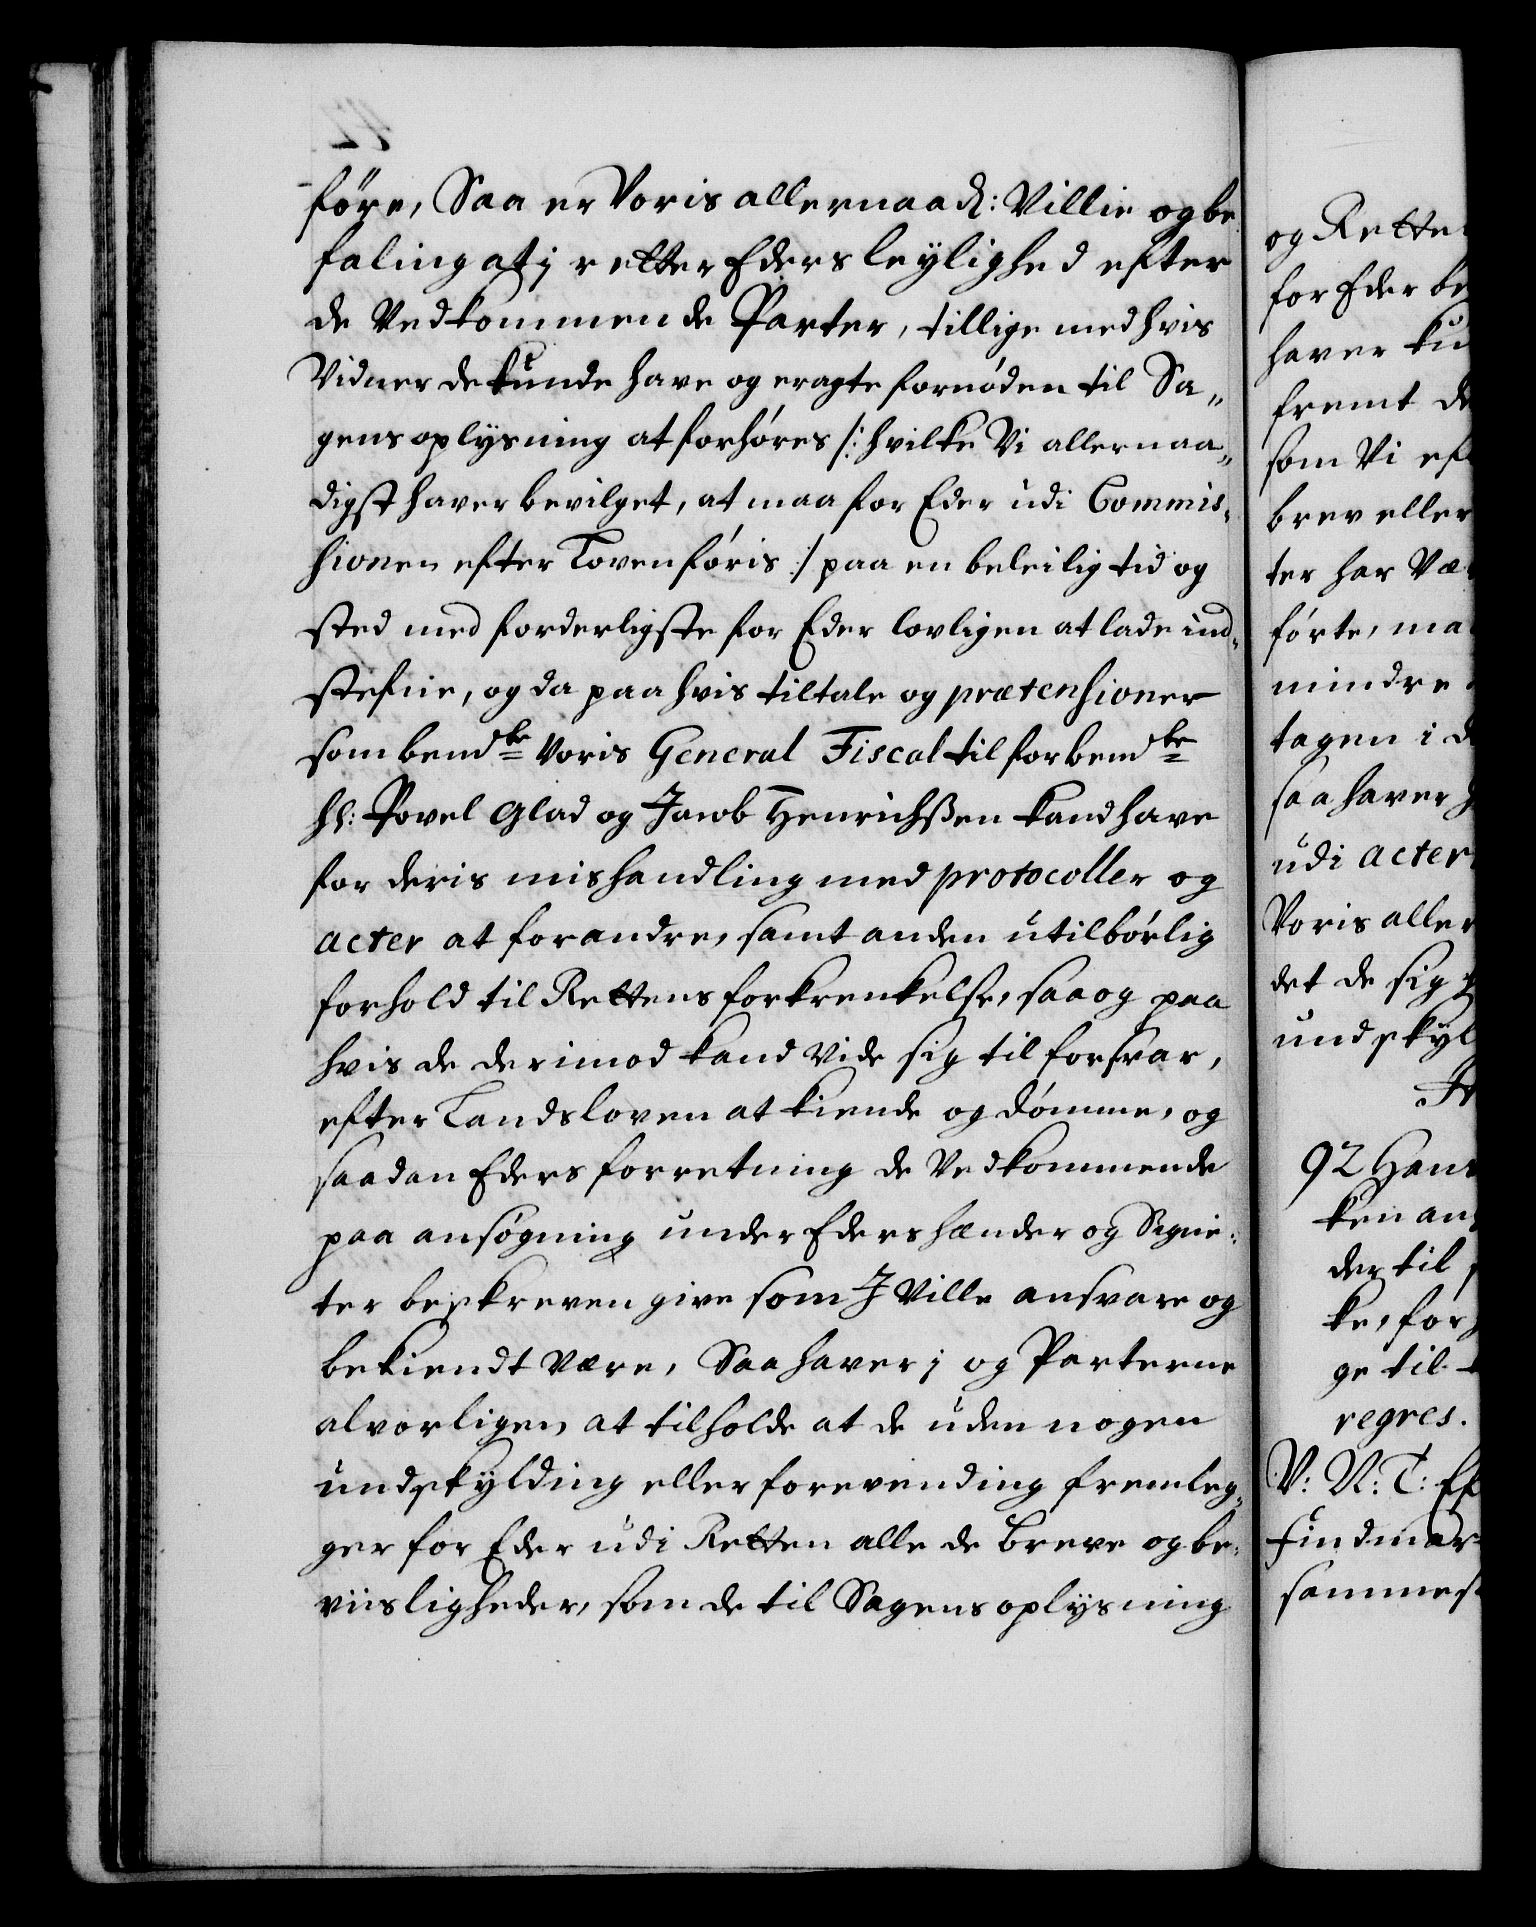 före, Saa er Voris allernaadl: Villie og be¬
faling at j retter Eders leylighed efter
de Vedkommende Parter, tillige med hvis
Vidner de kunde have og eragte fornøden til Sa„
gens oplysning at forhøres /: hvilke Vi allernaa„
digst haver bevilget, at maa for Eder udi Commis¬
hionen efter Loven føris :/ paa en beleilig tid og
sted med forderligste for Eder lovligen at lade ind¬
stefnie, og da paa hvis tiltale og prætenhioner
som bemdte Voris General Fiscal til forbemdte
Hl: Povel Glad og Jacob Henrichßen kand have
for deris mishandling med protocoller og
acter at forandre, samt anden utilbørlig
forhold til Rettens forkrenkelse, saa og paa
hvis de derimod kand vide sig til forsvar,
efter Landsloven at kiende og dømme, og
saadan Eders forretning de Vedkommende
paa ansøgning under Eders hænder og Signe¬
ter beskreven give som J Ville ansvare og
bekiendt være, Saa haver j og Parterne
alvorligen at tilholde at de uden nogen
undskylding eller forevending fremleg¬
ger for Eder udi Retten alle de breve og be¬
viisligheder, som de til Sagens oplysning
og Rette
for Eder be
haver ku
fremt de
som Vi ef
brev eller
ter har Væ
førte, ma
mindre
tagen i d
saa haver
udi acter
Voris aller
det de sig
undskyl
92 Hans
ken an
der til
ke, for
ge til
regres.
V: N: T: Ef
Findmar
sammest